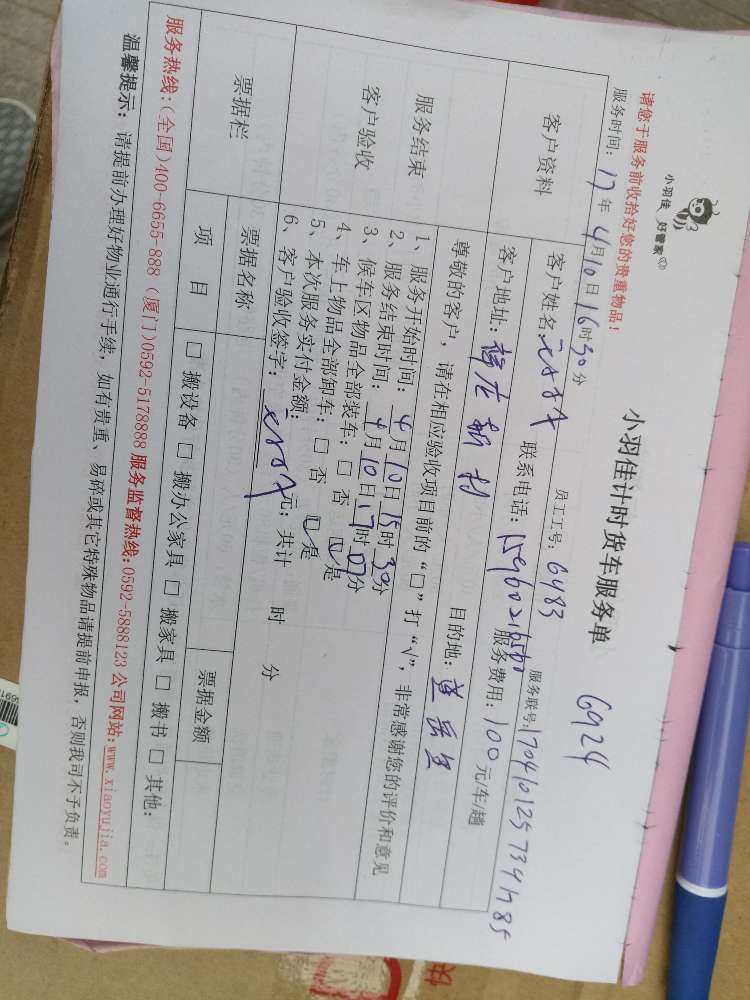 小羽佳 好管家
小羽佳计时货车服务单
6924
请您于服务前收拾好您的贵重物品！
员工工号：6483
服务时间：17年4月10日16时30分
服务联号：
客户资料
客户姓名：
联系电话：
服务费用：100元/车/趟
客户地址：
目的地：
服务结束
客户验收
尊敬的客户，请在相应验收项目前的“□”打“√”，非常感谢您的评价和意见
1、服务开始时间：4月10日15时30分
2、服务结束时间：4月10日17时分
3、候车区物品全部装车：□ 否 □ 是
4、车上物品全部卸车：□ 否 □ 是
5、本次服务实付金额： 元；共计 时 分
6、客户验收签字：
票据栏
票据名称
票据金额
项 目
□ 搬设备 □ 搬办公家具 □ 搬家具 □ 搬书 □ 其他：
服务热线：(全国)400-6655-888（厦门)0592-5178888 服务监督热线：0592-5888123 公司网站：www.xiaoyujia.com
温馨提示：请提前办理好物业通行手续，如有贵重、易碎或其它特殊物品请提前申报，否则我司不予负责。